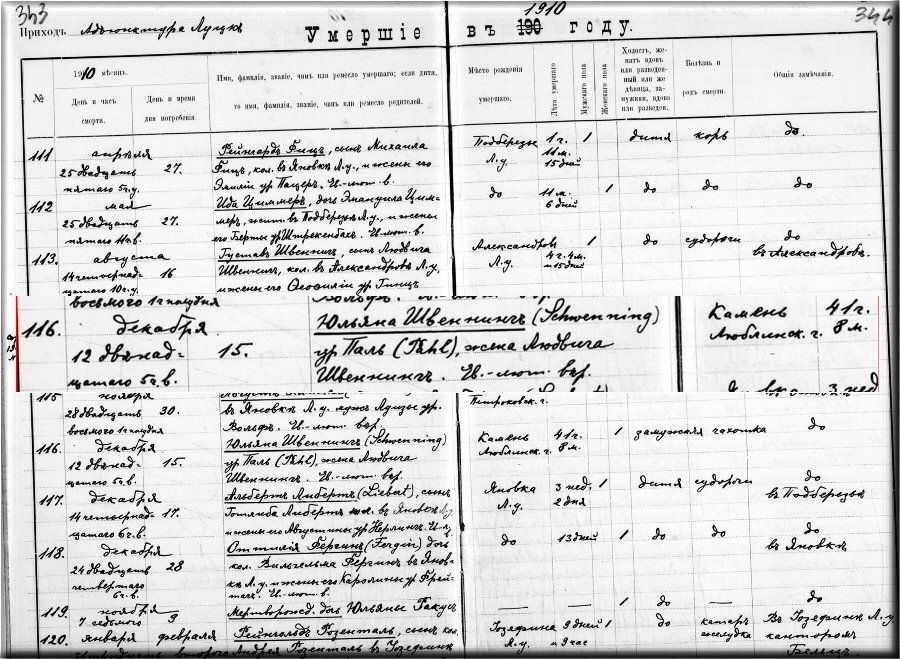 343
Приходъ Адъюнктура Луцкъ
Умершіе
1910
въ 190 году.
344
№
1910 мѣсяцъ.
День и часъ смерти.
День и время дня погребенія.
Имя, фамилія, званіе, чинъ или ремесло умершаго; если дитя,
то имя, фамилія, званіе, чинъ или ремесло родителей.
Мѣсто рожденія
умершаго.
Лѣта умершаго
Мужскаго пола
Женскаго пола
Холостъ, же-
натъ вдовъ
или разведен-
ный или же
дѣвица, за-
мужняя, вдова
или разведен.
Болѣзнь и
родъ смерти.
Общія замѣчанія.
111
апрѣля
25 двадцать
пятаго 5 ч. у.
27.
Рейнгардъ Фицъ, сынъ Михаила
Фицъ, кол. въ Яновкѣ Л. у., и жены его
Эмиліи ур. Пацеръ. Ев.-лют. в.
Подберезье
Л. у.
1 г.
11 м.
15 дней
1
дитя
корь
до
112
мая
25 двадцать
пятаго 11 ч. в.
27.
Ида Циммеръ, дочь Эмануила Цим-
меръ, жит. въ Подберезьѣ Л. у., и жены
его Берты ур. Штрекенбахъ. Ев.-лют. в.
до
11 м.
6 дней
1
до
до
до
113.
августа
14 четырнад-
цатаго 10 ч. у.
16
Густавъ Швеннингъ, сынъ Людвига
Швеннингъ, кол. въ Александровкѣ Л. у.,
и жены его
Александров.
Л. у.
4 г. 4 м.
и 15 дней
1
до
судороги
до
въ Александровк.
восьмого 1 ч. полудня
Вольфъ.
116.
декабря
12 двѣнад-
цатаго 5 ч. в.
15.
Юльяна Швеннингъ (Schwenning)
ур. Паль (Pahl), жена Людвига
Швеннингъ. Ев.-лют. вѣр.
Камень
Люблинск. г.
41 г.
8 м.
3 нед
115
ноября
28 двадцать
восьмого 1 ч. полудня
30.
въ Яновкѣ Л. у. мужъ Луизы ур.
Вольфъ. Ев.-лют. вѣр.
Петроковск. г.
116.
декабря
12 двѣнад-
цатаго 5 ч. в.
15.
Юльяна Швеннингъ (Schwenning)
ур. Паль (Pahl), жена Людвига
Швеннингъ. Ев.-лют. вѣр.
Камень
Люблинск. г.
41 г.
8 м.
1
замужняя
чахотка
до
117.
декабря
14 четырнад-
цатаго 6 ч. в.
17.
Альбертъ Либертъ (Liebert), сынъ
Готлиба Либертъ кол. въ Яновкѣ Л. у
и жены его Августины ур.
Яновка
Л. у.
3 нед.
2 дня
1
дитя
судороги
до
въ Подберезьѣ
118.
декабря
24 двадцать
четвертаго
6 ч. в.
28
Оттилія Фергинъ (Fergin) дочь
кол. Вильгельма Фергинъ въ Янов-
кѣ Л. у. и жены его Каролины ур.
Ев.-лют. в.
до
13 дней
1
до
до
до
въ Яновкѣ
119.
ноября
7 седьмого
9
Мертворожд. дочь Юльяны
—
—
1
до
—
до
120.
января
февраля
Рейнгольдъ Розенталь, сынъ кол.
Андрея Розенталь въ Іозефинѣ
Іозефина
Л. у.
9 дней
и 9 час
1
до
катаръ
желудка
Въ Іозефинѣ Л. у.
канторомъ